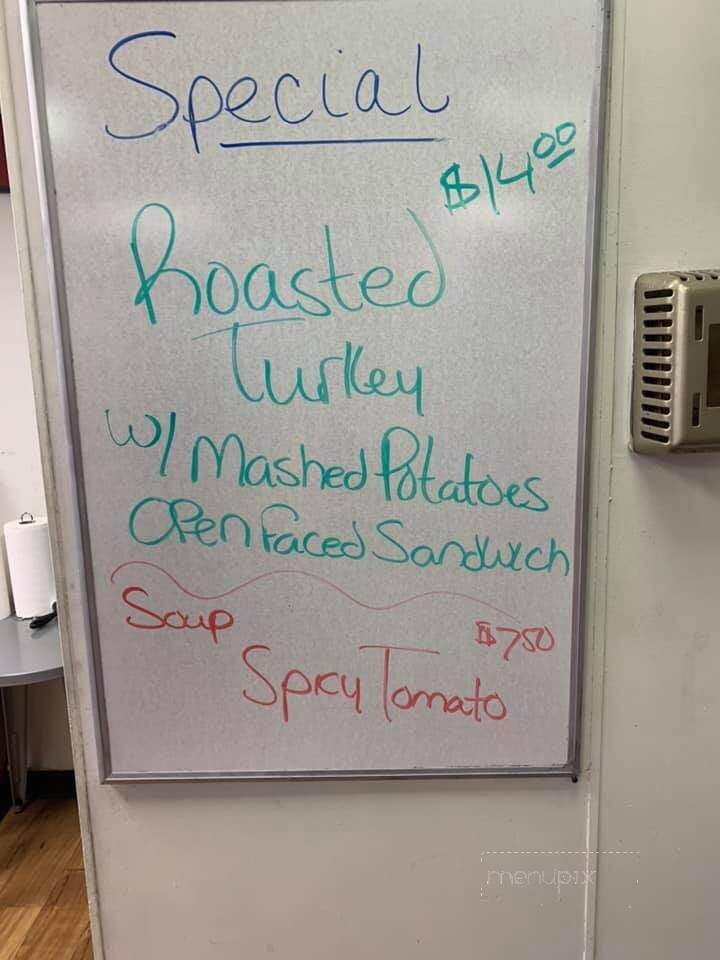 Special
$14.00
Roasted
Turkey
w/ Mashed Potatoes
Open Faced Sandwich
Soup
$7.50
Spicy Tomato
menupix